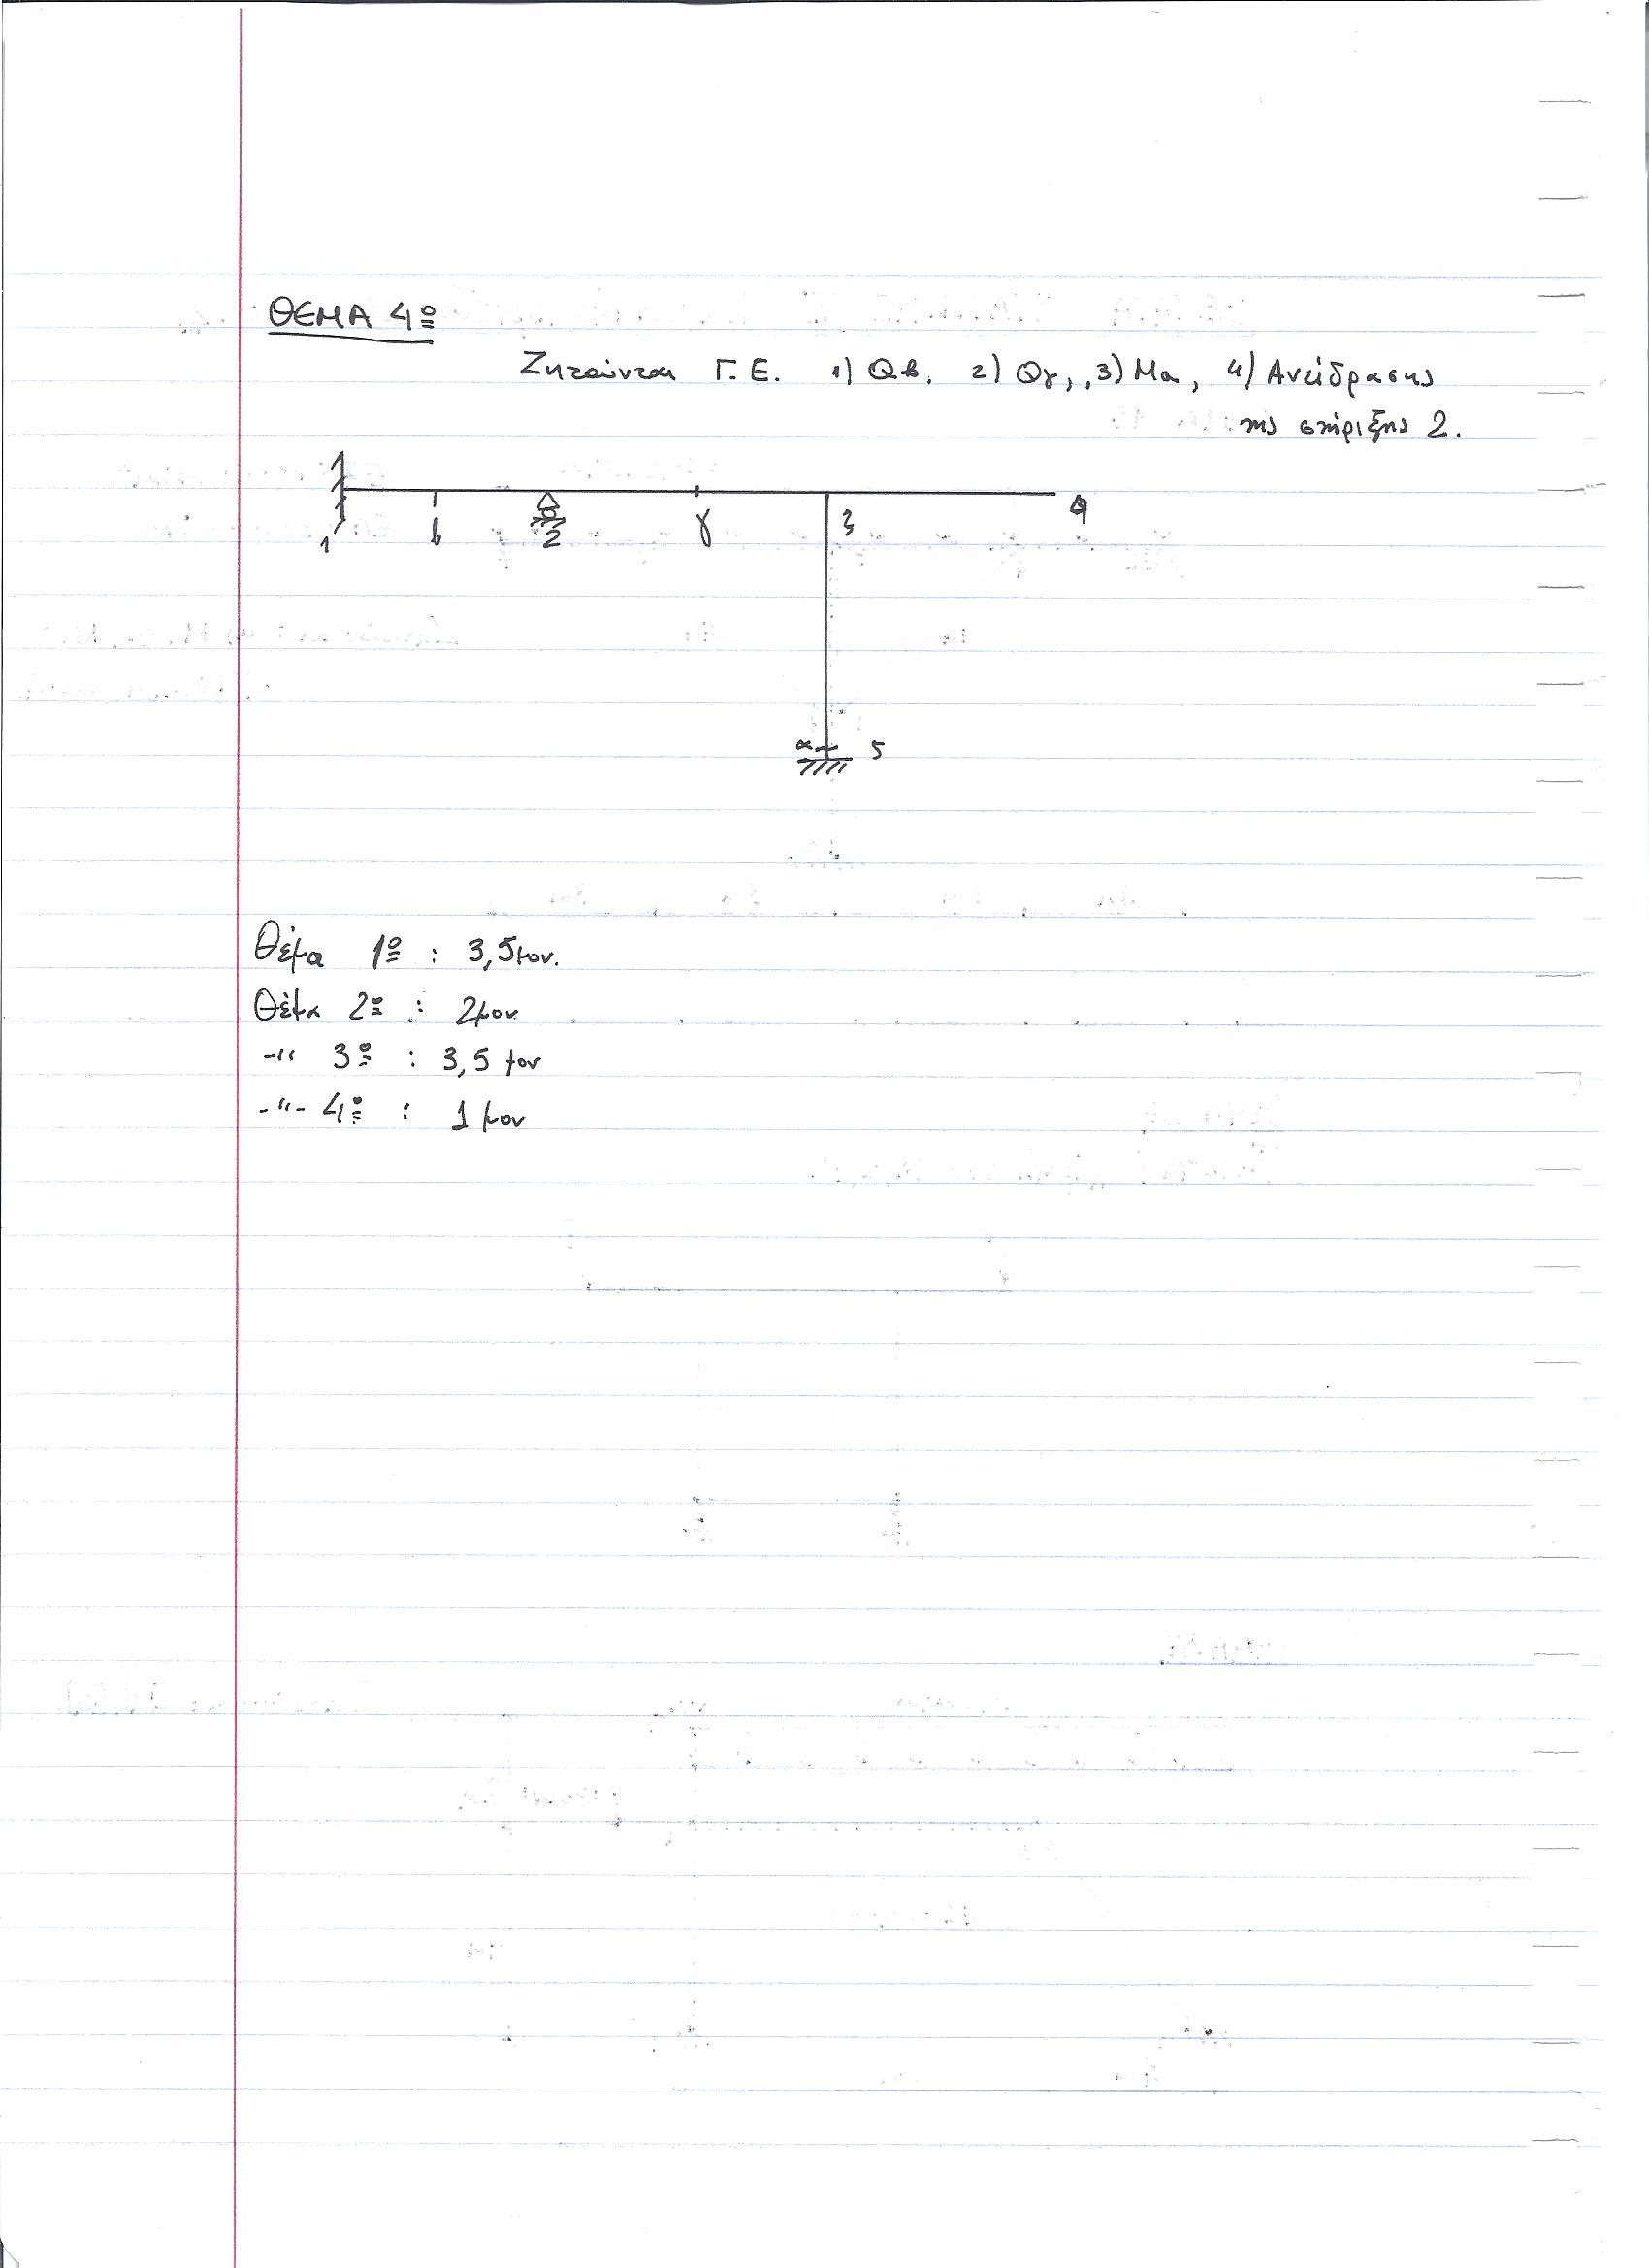 ΘΕΜΑ 4º
Ζητούνται Γ.Ε. 1) Qβ, 2) Qγ, 3) Μα, 4) Αντίδρασης
της στήριξης 2.
1 β 2 γ 3 4
α 5
Θέμα 1º : 3,5 μον.
Θέμα 2º : 2 μον
-"- 3º : 3,5 μον
-"- 4º : 1 μον